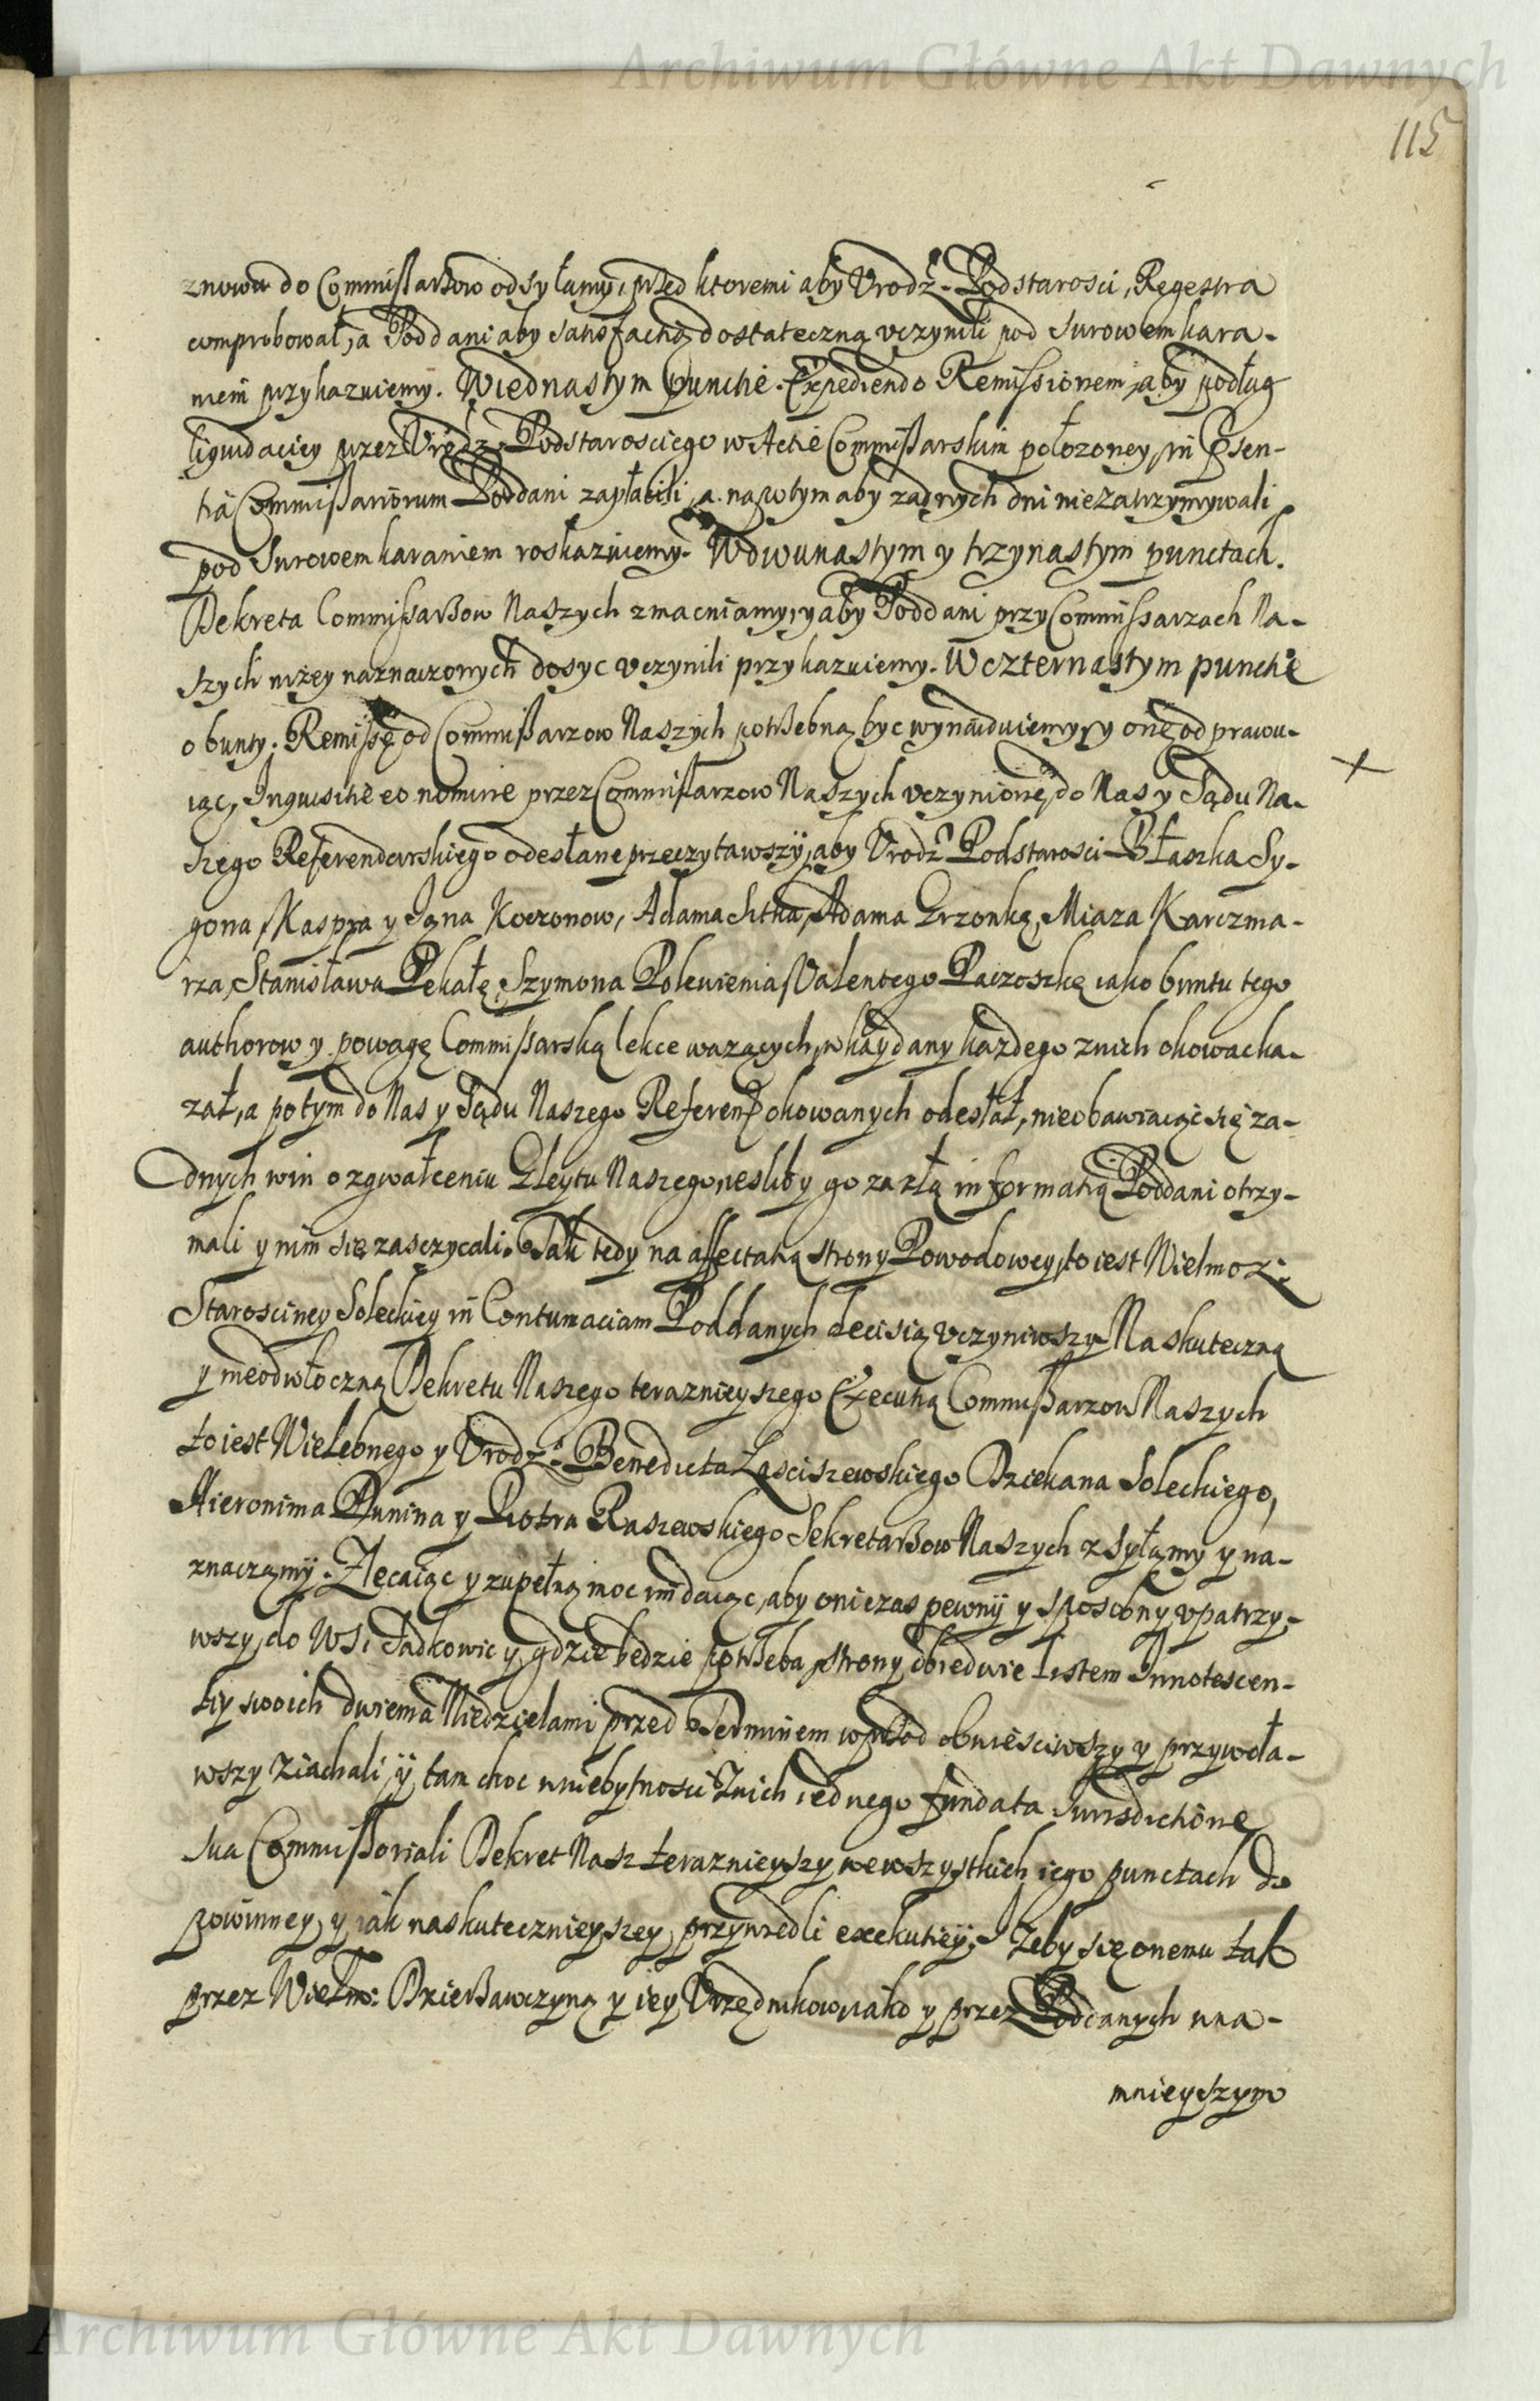 Archiwum Główne Akt Dawnych
115
znowu do Commissarzow odsyłamy, przed ktoremi aby Vrodz. Podstarosci, Regestra
comprobował, a Poddani aby satisfactią dostateczną vczynili pod surowem kara-
niem przykazuiemy. Wiednastym punctie. Expediendo Remissionem, aby podług
liquidaciey przez Vrodz. Podstarosciego w Actie Commissarskim położoney, in Psen-
tia Commissariorum Poddani zapłacili, a napotym aby zadnych dni niezatrzymywali
pod surowem karaniem roskazuiemy. Wdwunastym y trzynastym punctach.
Dekreta Commissarzow Naszych zmacniamy, y aby Poddani przy Commissarzach Na-
szych niżey naznaczonych dosyc vczynili przykazuiemy. Wczternastym punctie
o bunty. Remissę od Commissarzow Naszych potrzebną byc wynayduiemy, y onę odprawu-
iąc, Inquisitie eo nomine przez Commissarzow Naszych vczynione, do Nas y Sądu Na-
szego Referendarskiego odesłane przeczytawszy, aby Vrodz. Podstarosci Błaszka Sy-
gona, Kaspra y Jana Koczonow, Adama Sitka, Adama Grzonkę, Miaza Karczma-
rza, Stanisława Pekałę, Szymona Polewienia, Valentego Paczoszkę iako buntu tego
authorow y powagę Commissarską lekce wazących, w kaydany kazdego znich okowac ka-
zał, a potym do Nas y Sądu Naszego Referen. okowanych odesłał, nieobawiaiąc się za-
dnych win o zgwałceniu Gleytu Naszego, iesliby go za złą informatią Poddani otrzy-
mali y nim się zasczycali. Tak tedy na affectatią strony Powodowey, to iest Wielmoz.
Starosciney Soleckiey in Contumaciam Poddanych decisią vczyniwszy. Na skuteczną
y nieodwłoczną Dekretu Naszego terazniejszego Executią Commissarzow Naszych
to iest Wielebnego y Vrodz. Benedicta Łąsciszewskiego Dziekana Soleckiego,
Hieronima Dunina y Piotra Raszewskiego Sekretarzow Naszych zsyłamy y na-
znaczamy. Zlecaiąc y zupełną moc im daiąc, aby oni czas pewny y sposobny vpatrzy-
wszy, do Wsi Sadkowic y gdzie będzie potrzeba, strony obiedwie listem Innotescen-
tiy swoich dwiema Niedzielami przed Terminem wprzod obwiesciwszy y przywoła-
wszy ziachali, y tam choc w niebytnosci znich iednego fundata Iurisdictione
sua Commissoriali Dekret Nasz terazniejszy we wszystkich iego punctach do
powinney, y iak naskutecznieyszey, przywiedli exekutiey. Zeby się onemu tak
przez Wielm: Dzierzawczyną y iey Vrzędnikow iako y przez Poddanych wna-
mnieyszym
Archiwum Główne Akt Dawnych